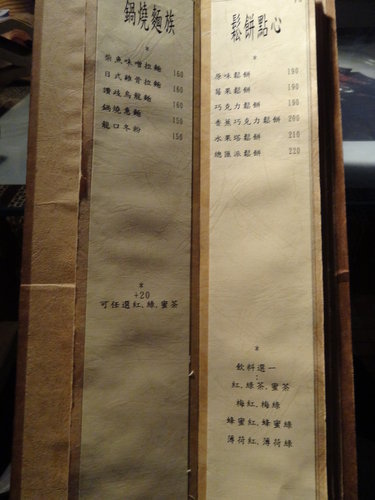 鍋燒麵族
柴魚味噌拉麵 160
日式雞骨拉麵 160
讚岐烏龍麵 160
鍋燒意麵 150
龍口冬粉 150
+20
可任選紅.綠.蜜茶
鬆餅點心
原味鬆餅 190
莓果鬆餅 190
巧克力鬆餅 190
香蕉巧克力鬆餅 200
水果塔鬆餅 210
總匯派鬆餅 220
飲料選一
:
紅.綠茶.蜜茶
梅紅.梅綠
蜂蜜紅.蜂蜜綠
薄荷紅.薄荷綠